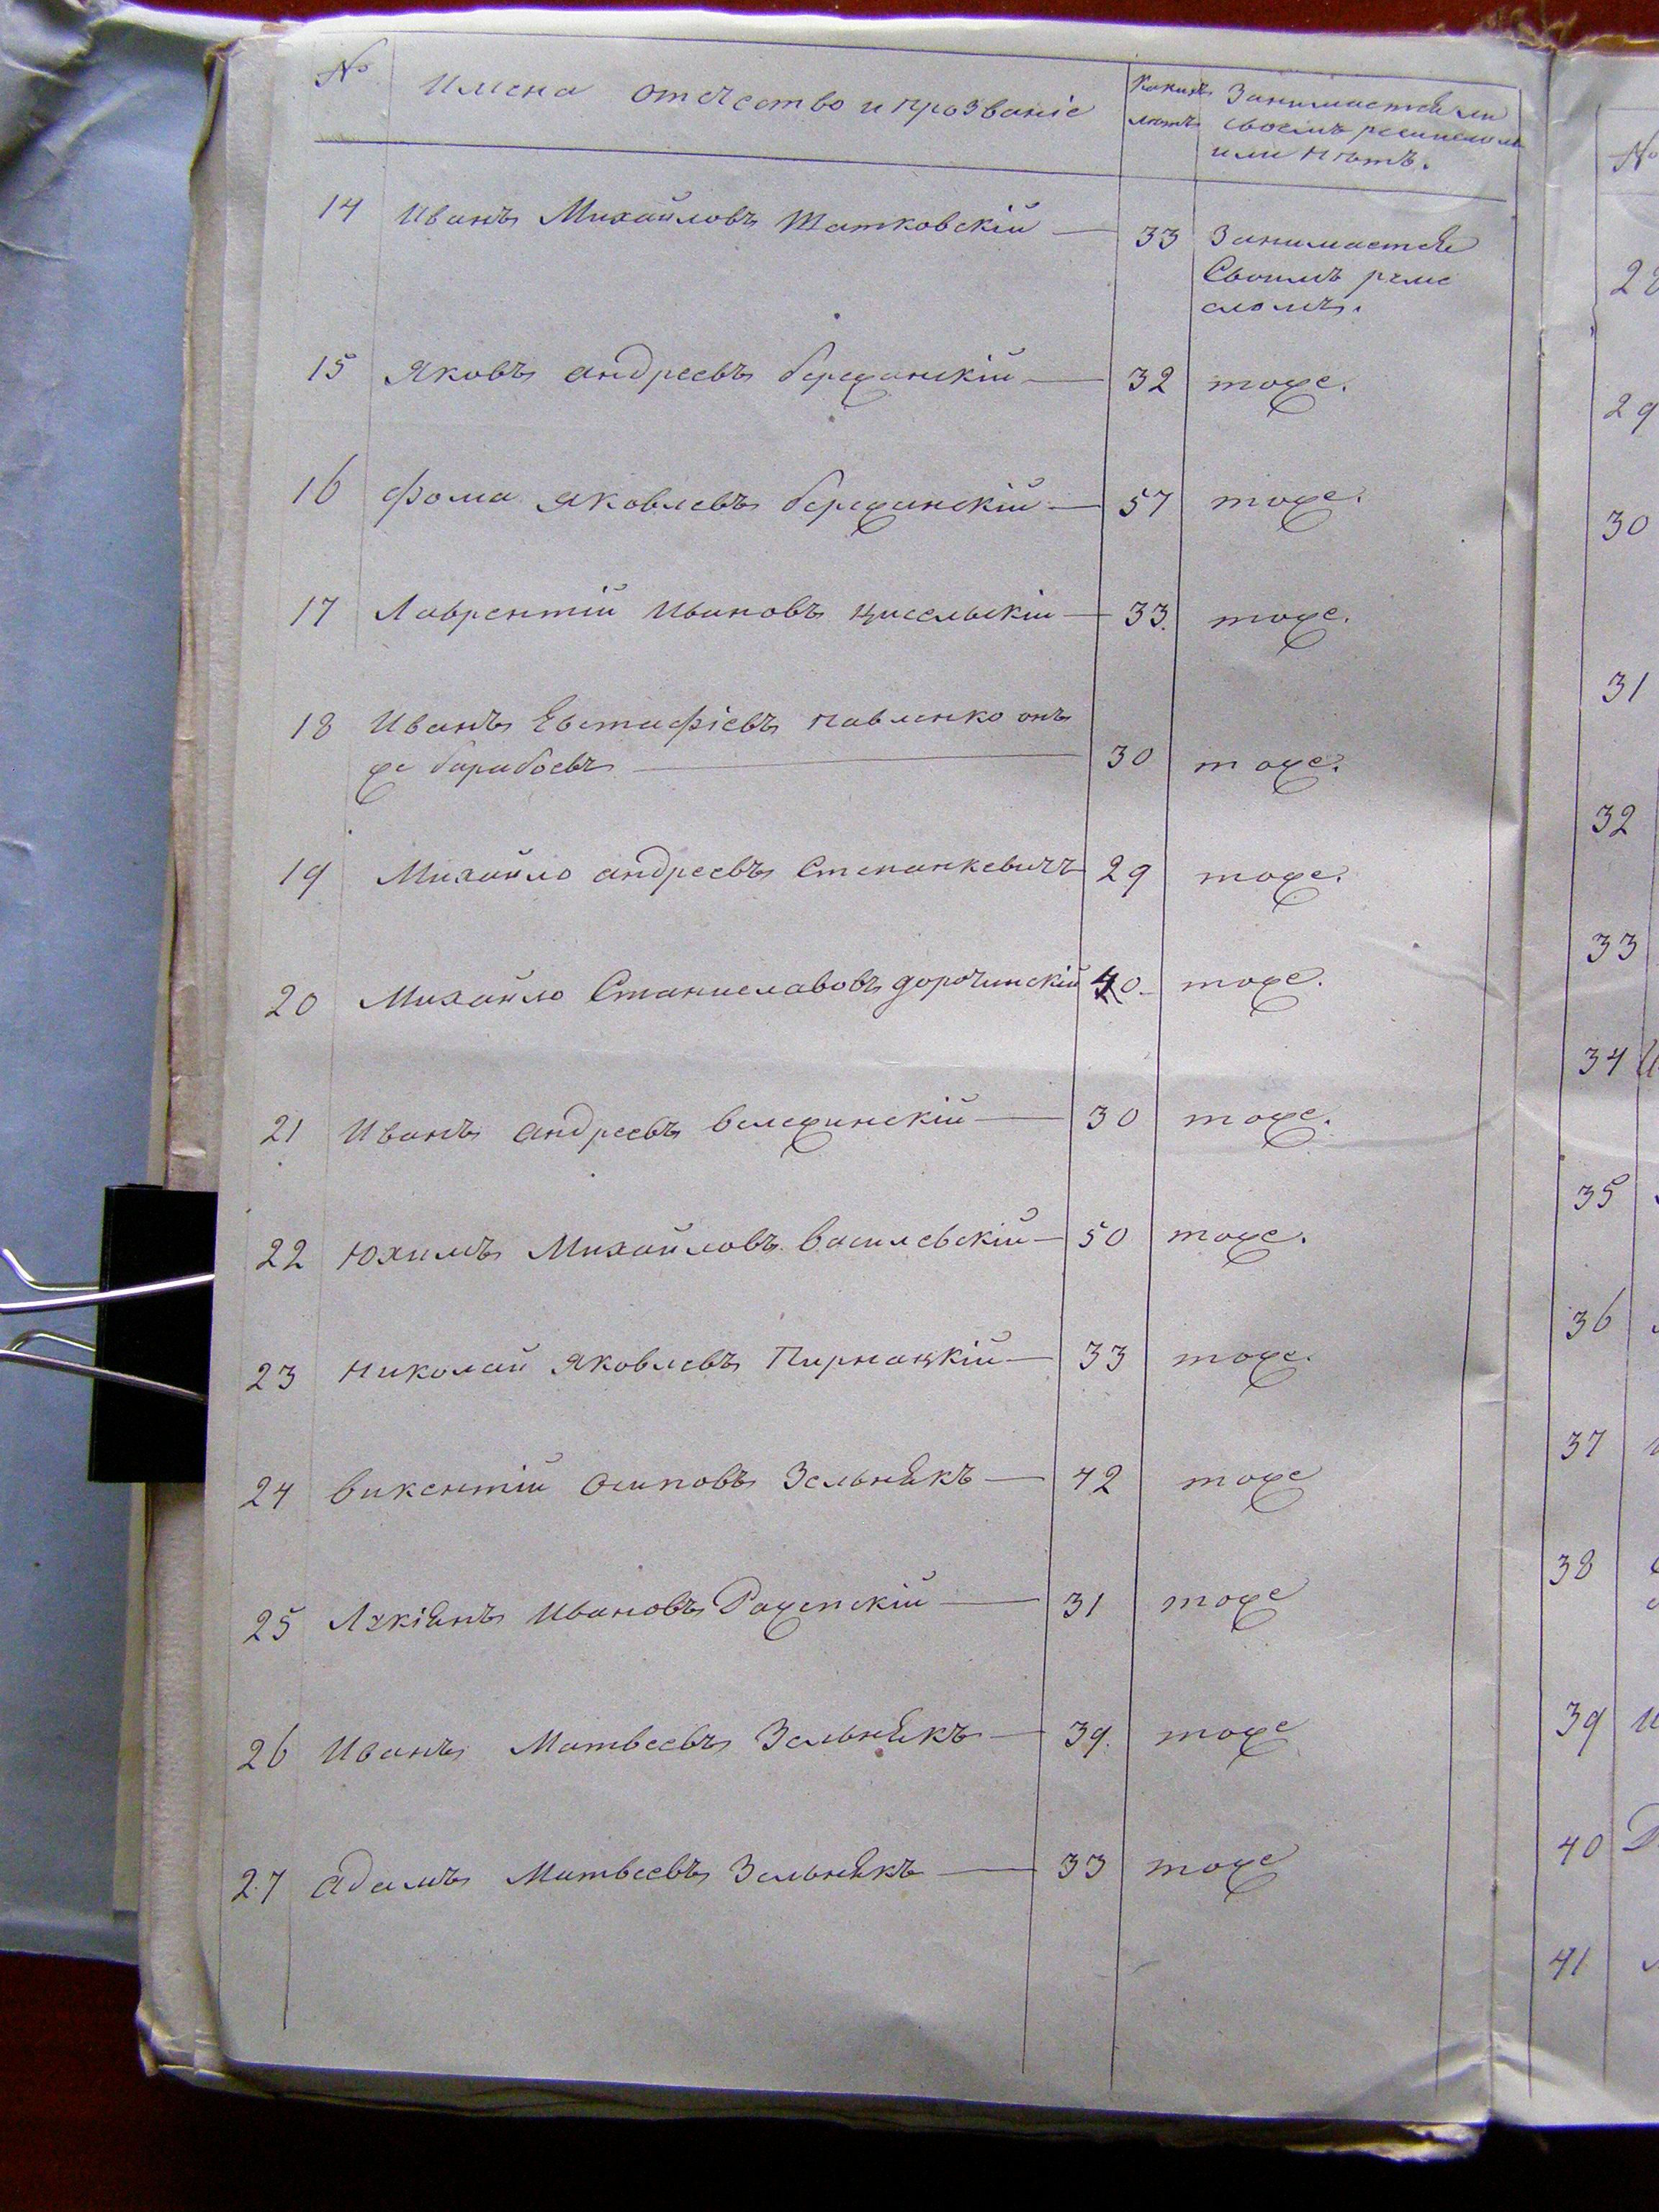 № Имена отечество и прозваніе Какихъ Занимается ли
лѣтъ своимъ ремесломъ
или нѣтъ.
14 Иванъ Михайловъ Шатковскій 33 Занимается
Своимъ реме
сломъ.
15 Яковъ андреевъ бережанскій 32 тоже.
16 фома яковлевъ бережанскій 57 тоже.
17 Лаврентій Ивановъ 33. тоже.
18 Иванъ Евстафіевъ павленко онъ
же барабоевъ 30 тоже.
19 Михайло андреевъ Степанкевичъ 29 тоже.
20 Михайло Станиславовъ дорочинскій 40 тоже.
21 Иванъ андреевъ вележинскій 30 тоже.
22 Юхимъ Михайловъ василевскій 50 тоже.
23 Николай яковлевъ Пирнацкій 33 тоже.
24 викентій осиповъ Зельнякъ 42 тоже
25 Ивановъ 31 тоже
26 Иванъ Матвеевъ Зельнякъ 39. тоже
27 адамъ Матвеевъ Зельнякъ 33 тоже
№
29
30
31
32
33
34
35
36
37
38
39
40
41